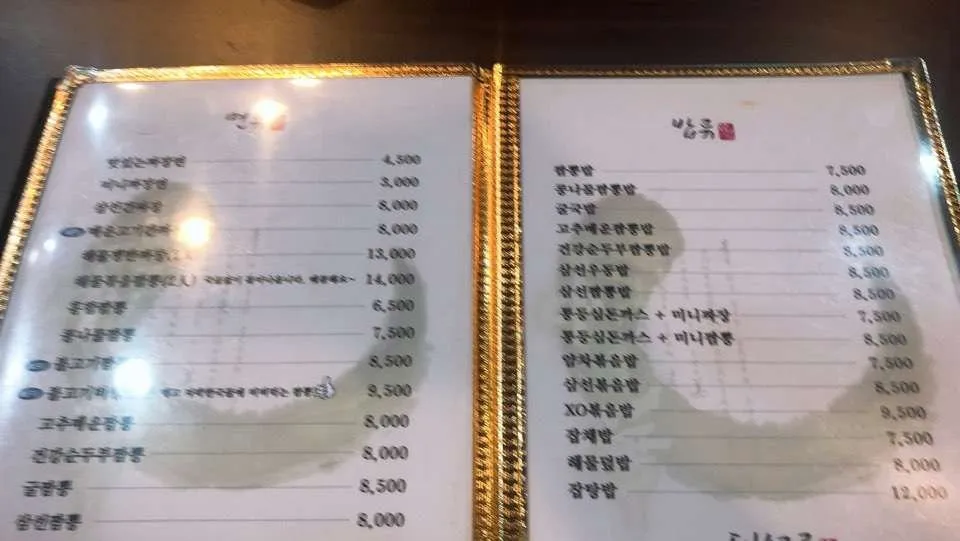 면류
맛있는짜장면 4,500
미니짜장면 3,000
삼선간짜장 8,000
매운고기간짜 8,000
해물쟁반짜장(2人) 13,000
해물볶음짬뽕(2人) 14,000
홍합짬뽕 6,500
콩나물짬뽕 7,500
불고기짬 8,500
불고기 짬뽕 9,500
고추매운짬뽕 8,000
건강순두부짬뽕 8,000
굴짬뽕 8,500
삼선짬뽕 8,000
밥류
짬뽕밥 7,500
콩나물짬뽕밥 8,000
굴국밥 8,500
고추매운짬뽕밥 8,500
건강순두부짬뽕밥 8,500
삼선우동밥 8,500
삼선짬뽕밥 8,500
통등심돈까스 + 미니짜장 7,500
통등심돈까스 + 미니짬뽕 8,500
야채볶음밥 7,500
삼선볶음밥 8,500
XO볶음밥 9,500
잡채밥 7,500
해물덮밥 8,000
잡탕밥 12,000